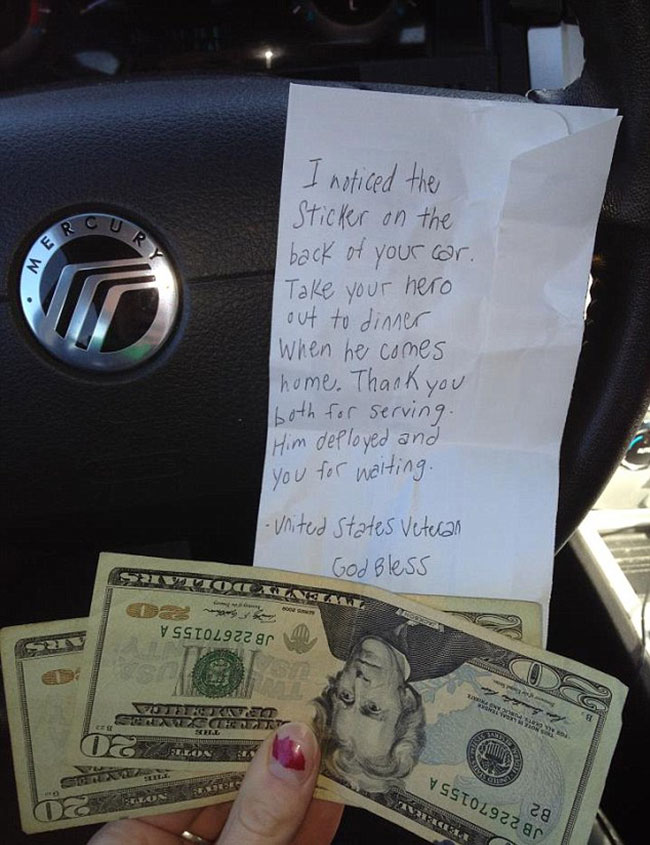 MERCURY
I noticed the
Sticker on the
back of your car.
Take your hero
out to dinner
When he comes
home. Thank you
both for serving.
Him deployed and
you for waiting.
-United States Veteran
God Bless
20
JB22670155A
SERIES 2009
THE
UNITED STATES
OF AMERICA
20
JB22670155A
B2
20